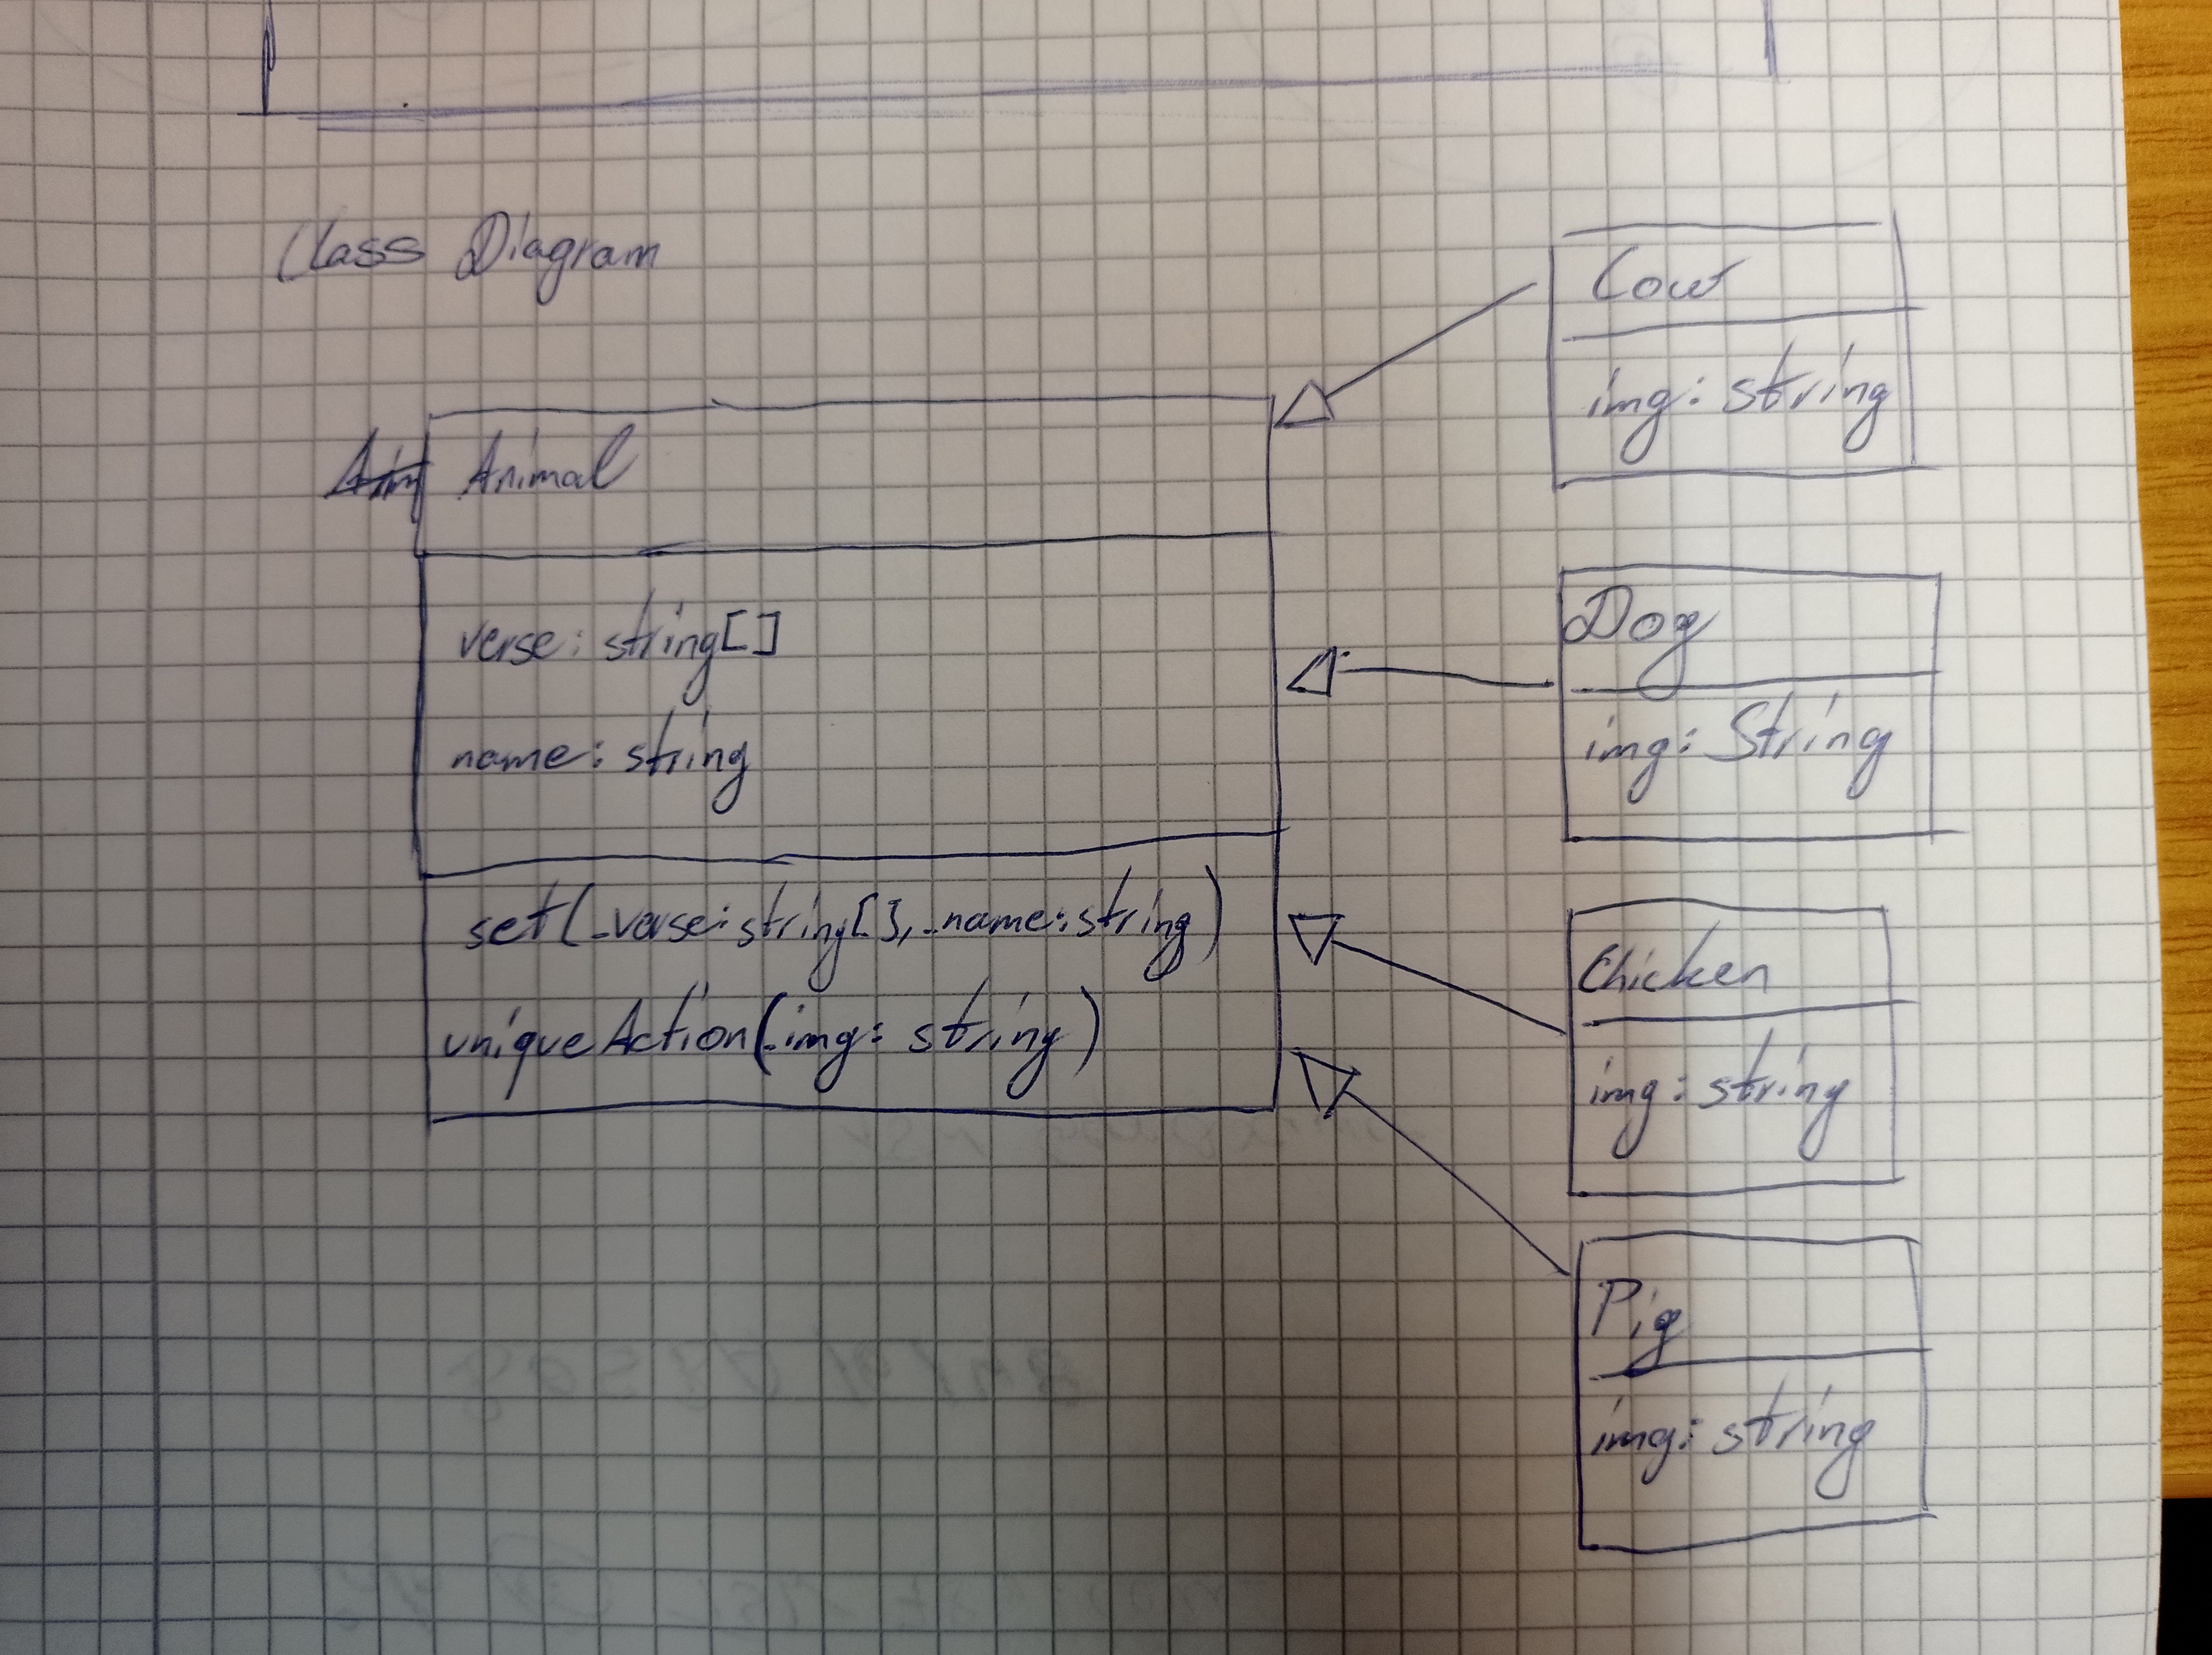 Class Diagram
Animal
verse: string[]
name: string
set(_verse: string[], _name: string)
uniqueAction(_img: string)
Cow
img: string
Dog
img: String
Chicken
img: string
Pig
img: string